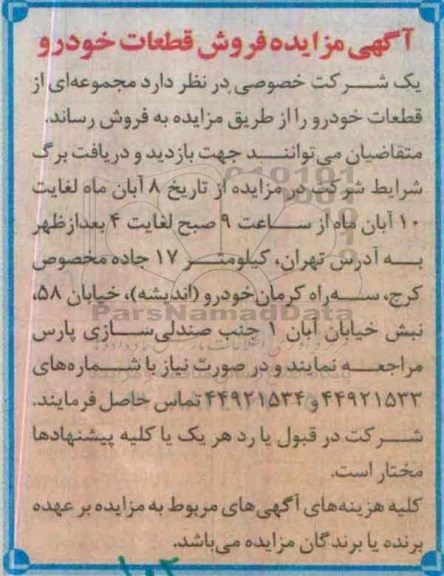 آگهی مزایده فروش قطعات خودرو
یک شرکت خصوصی در نظر دارد مجموعه‌ای از
قطعات خودرو را از طریق مزایده به فروش رساند.
متقاضیان می‌توانند جهت بازدید و دریافت برگ
شرایط شرکت در مزایده از تاریخ ۸ آبان ماه لغایت
۱۰ آبان ماه از ساعت ۹ صبح لغایت ۴ بعدازظهر
به آدرس تهران، کیلومتر ۱۷ جاده مخصوص
کرج، سه‌راه کرمان‌خودرو (اندیشه)، خیابان ۵۸،
نبش خیابان آبان ۱ جنب صندلی‌سازی پارس
مراجعه نمایند و در صورت نیاز با شماره‌های
۴۴۹۲۱۵۳۳ و ۴۴۹۲۱۵۳۴ تماس حاصل فرمایند.
شرکت در قبول یا رد هر یک یا کلیه پیشنهادها
مختار است.
کلیه هزینه‌های آگهی‌های مربوط به مزایده بر عهده
برنده یا برندگان مزایده می‌باشد.
ParsNamadData